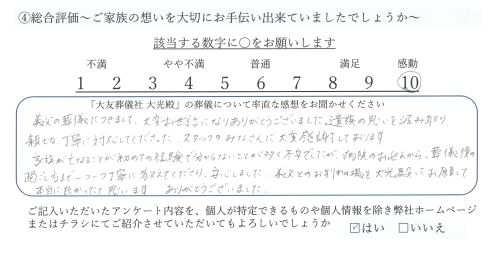 ④総合評価～ご家族の想いを大切にお手伝い出来ていましたでしょうか～
該当する数字に○をお願いします
不満 やや不満 普通 満足 感動
1 2 3 4 5 6 7 8 9 10
「大友葬儀社 大光殿」の葬儀について率直な感想をお聞かせください
義父の葬儀につきまして、大変お世話になりありがとうございました。遺族の思いを汲み取り
親切、丁寧に対応してくださった スタッフのみなさんに大変感謝しております
家族が亡なることが初めての経験で分からないことが多く不安でしたが、病院のお迎えから、葬儀後の
過ごし方まで一つ一つ丁寧に教えてくださり、安心しました。義父とのお別れの場を大光殿さんにお願いして
本当に良かったと思います ありがとうございました。
ご記入いただいたアンケート内容を、個人が特定できるものや個人情報を除き弊社ホームページ
またはチラシにてご紹介させていただいてもよろしいでしょうか ☑はい □いいえ